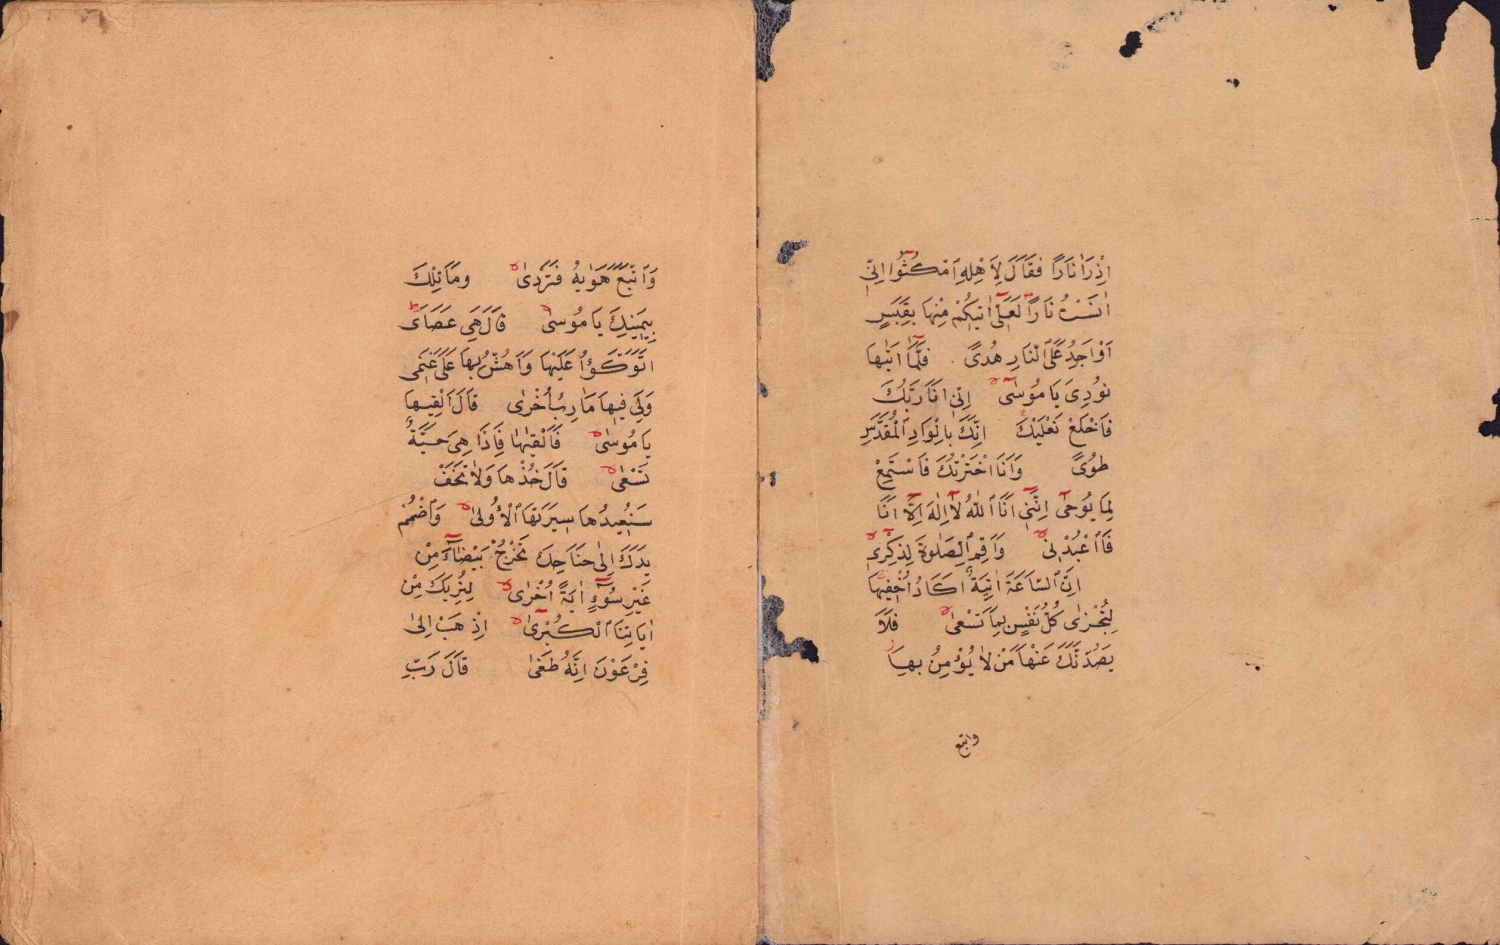 اِذْ رَاٰ نَارًا فَقَالَ لِاَهْلِهِ امْكُثُوا اِنّ۪ي
اٰنَسْتُ نَارًا لَعَلّ۪ي اٰت۪يكُمْ مِنْهَا بِقَبَسٍ
اَوْ اَجِدُ عَلَى النَّارِ هُدًى فَلَمَّا اَتٰيهَا
نُودِيَ يَا مُوسٰى اِنّ۪ي اَنَا رَبُّكَ
فَاخْلَعْ نَعْلَيْكَ اِنَّكَ بِالْوَادِ الْمُقَدَّسِ
طُوًى وَاَنَا اخْتَرْتُكَ فَاسْتَمِعْ
لِمَا يُوحٰى اِنَّن۪ي اَنَا اللّٰهُ لَا اِلٰهَ اِلَّا اَنَا
فَاعْبُدْن۪ي وَاَقِمِ الصَّلٰوةَ لِذِكْر۪ي
اِنَّ السَّاعَةَ اٰتِيَةٌ اَكَادُ اُخْف۪يهَا
لِتُجْزٰى كُلُّ نَفْسٍ بِمَا تَسْعٰى فَلَا
يَصُدَّنَّكَ عَنْهَا مَنْ لَا يُؤْمِنُ بِهَا
واتبع
وَاتَّبَعَ هَوٰيهُ فَتَرْدٰى وَمَا تِلْكَ
بِيَم۪ينِكَ يَا مُوسٰى قَالَ هِيَ عَصَايَ
اَتَوَكَّؤُا عَلَيْهَا وَاَهُشُّ بِهَا عَلٰى غَنَم۪ي
وَلِيَ ف۪يهَا مَاٰرِبُ اُخْرٰى قَالَ اَلْقِهَا
يَا مُوسٰى فَاَلْقٰيهَا فَاِذَا هِيَ حَيَّةٌ
تَسْعٰى قَالَ خُذْهَا وَلَا تَخَفْ
سَنُع۪يدُهَا س۪يرَتَهَا الْاُولٰى وَاضْمُمْ
يَدَكَ اِلٰى جَنَاحِكَ تَخْرُجْ بَيْضَاءَ مِنْ
غَيْرِ سُوءٍ اٰيَةً اُخْرٰى لِنُرِيَكَ مِنْ
اٰيَاتِنَا الْكُبْرٰى اِذْهَبْ اِلٰى
فِرْعَوْنَ اِنَّهُ طَغٰى قَالَ رَبِّ